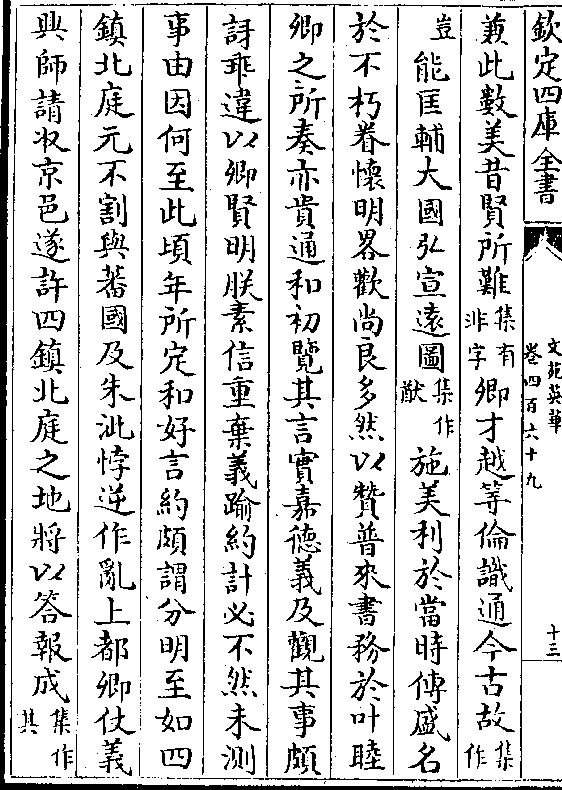 欽定四庫全書
文苑英華
卷四百六十九
十三
兼此數美昔賢所難集有非字卿才越等倫識通今古故集作
豈能匡輔大國弘宣遠圖集作猷施美利於當時傳盛名
於不朽眷懷明畧歡尚良多然以贊普來書務於叶睦
卿之所奏亦貴通和初覽其言實嘉德義及觀其事頗
訝乖違以卿賢明朕素信重棄義踰約計必不然未測
事由因何至此頃年所定和好言約頗謂分明至如四
鎮北庭元不割與蕃國及朱泚悖逆作亂上都卿仗義
興師請收京邑遂許四鎮北庭之地將以答報成集作其